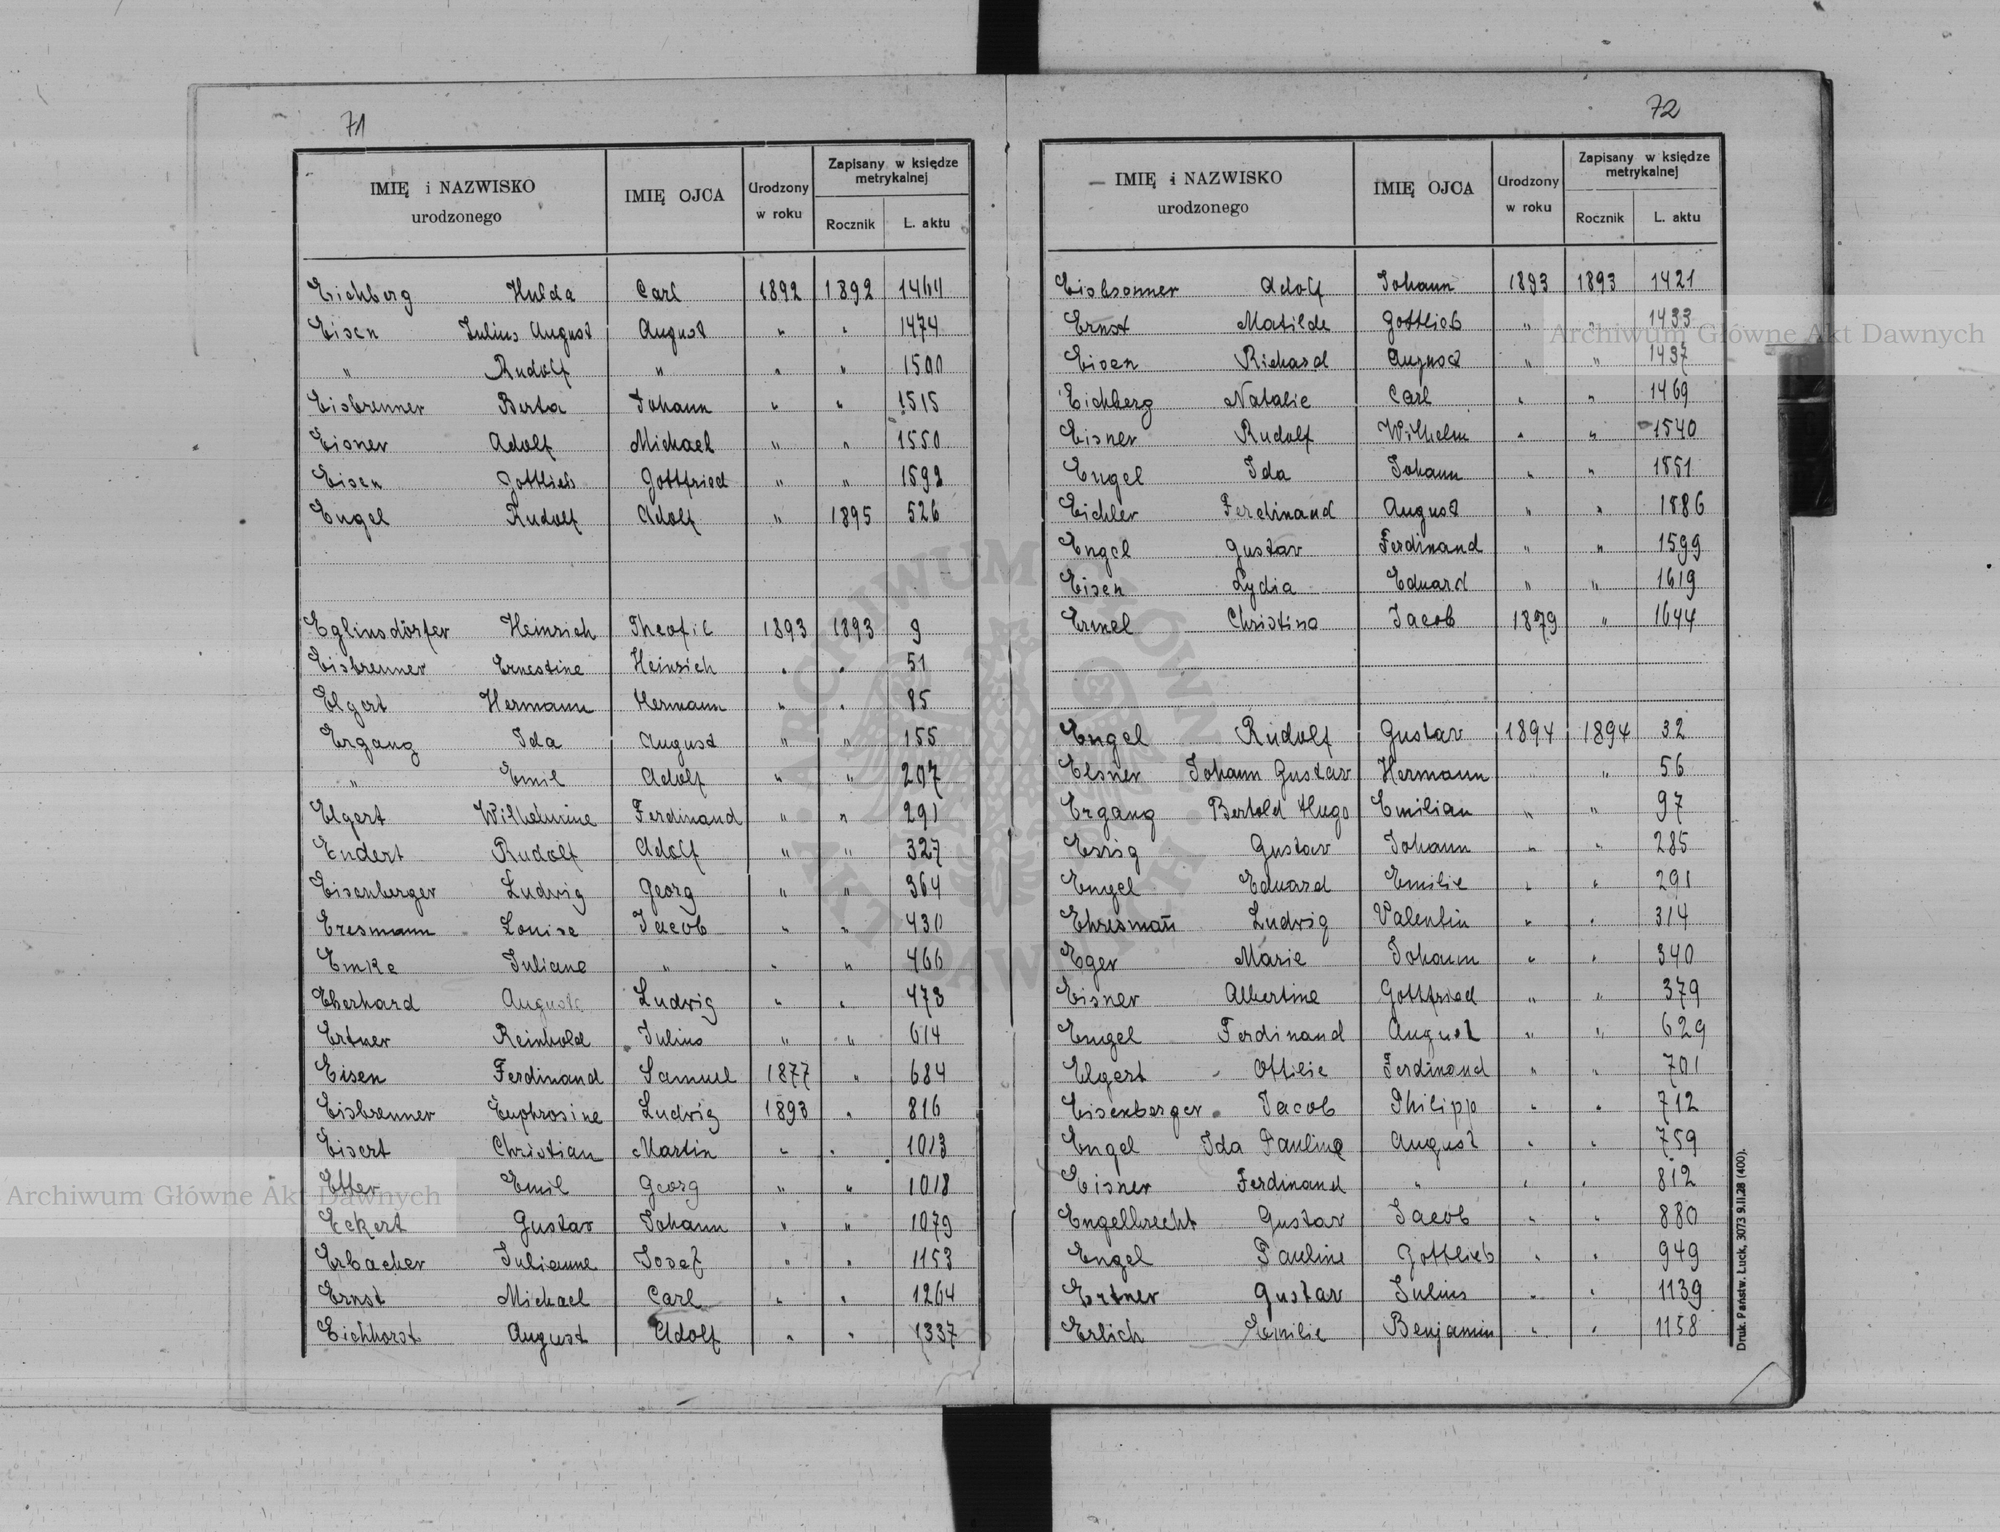 71
IMIĘ i NAZWISKO urodzonego IMIĘ OJCA Urodzony w roku Zapisany w księdze metrykalnej Rocznik L. aktu
Eichberg Hulda Carl 1892 1892 1464
Eisen Julius August August " " 1474
" Rudolf " " " 1500
Eisbrenner Berta Johann " " 1515
Eisner Adolf Michael " " 1550
Eisen Gottlieb Gottfried " " 1592
Engel Rudolf Adolf " 1895 526
Eglinsdörfer Heinrich Theofil 1893 1893 9
Eisbrenner Ernestine Heinrich " " 51
Elgert Hermann Hermann " " 85
Ergang Ida August " " 155
" Emil Adolf " " 207
Elgert Wilhelmine Ferdinand " " 291
Endert Rudolf Adolf " " 327
Eisenberger Ludwig Georg " " 364
Eresmann Louise Jacob " " 430
Emke Juliane " " " 466
Eberhard Auguste Ludwig " " 473
Ertner Reinhold Julius " " 614
Eisen Ferdinand Samuel 1877 " 684
Eisbrenner Euphrosine Ludwig 1893 " 816
Eisert Christian Martin " " 1013
Etter Emil Georg " " 1018
Eckert Gustav Johann " " 1079
Erbacher Julianne Josef " " 1153
Ernst Michael Carl " " 1264
Eichhorst August Adolf " " 1337
72
IMIĘ i NAZWISKO urodzonego IMIĘ OJCA Urodzony w roku Zapisany w księdze metrykalnej Rocznik L. aktu
Eisbrenner Adolf Johann 1893 1893 1421
Ernst Matilde Gottlieb " " 1433
Eisen Richard August " " 1437
Eichberg Natalie Carl " " 1469
Eisner Rudolf Wilhelm " " 1540
Engel Ida Johann " " 1551
Eichler Ferdinand August " " 1586
Engel Gustav Ferdinand " " 1599
Eisen Lydia Eduard " " 1619
Ermel Christina Jacob 1879 " 1644
Engel Rudolf Gustav 1894 1894 32
Elsner Johann Gustav Hermann " 56
Ergang Bertold Hugo Emilian " " 97
Essig Gustav Johann " " 285
Engel Eduard Emilie " " 291
Ehresmañ Ludwig Valentin " " 314
Eger Marie Johann " " 340
Eisner Albertine Gottfried " " 379
Engel Ferdinand August " " 629
Elgert Ottilie Ferdinand " " 701
Eisenberger Jacob Philipp " " 712
Engel Ida Pauline August " " 759
Eisner Ferdinand " " " 812
Engelbrecht Gustav Jacob " " 880
Engel Pauline Gottlieb " " 949
Ertner Gustav Julius " " 1139
Erlich Emilie Benjamin " " 1158
Druk. Państw. Łuck, 3073 9.II.28 (400).
Archiwum Główne Akt Dawnych
Archiwum Główne Akt Dawnych
ARCHIWUM GŁÓWNE AKT DAWNYCH